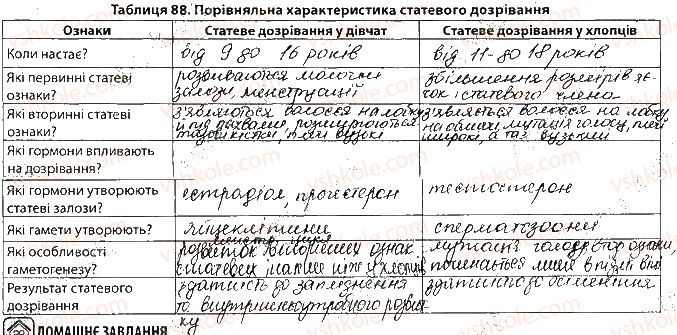 Таблиця 88. Порівняльна характеристика статевого дозрівання
Ознаки Статеве дозрівання у дівчат Статеве дозрівання у хлопців
Коли настає? від 9 до 16 років від 11-до 18 років
Які первинні статеві розвиваються молочні збільшення розмірів яє-
ознаки? залози, менструації чок і статевого члена
Які вторинні статеві з'являються волосся на лобку з'являється волосся на лобку
ознаки? й під пахвами, розширюються на обличчі мутація голосу, плечі
тазові кістки, плечі вузькі широкі, а таз вузький
Які гормони впливають
на дозрівання?
Які гормони утворюють естрадіол, прогестерон тестостерон
статеві залози?
Які гамети утворюють? яйцеклітини сперматозоони
Які особливості розвиток вторинних ознак мутація голосу
гаметогенезу? статевих раніше ніж у хлопців починається
Результат статевого здатність до запліднення здатність до осіменіння
дозрівання та внутрішньоутробного розвит-
ку
ДОМАШНЄ ЗАВДАННЯ
vshkole.com